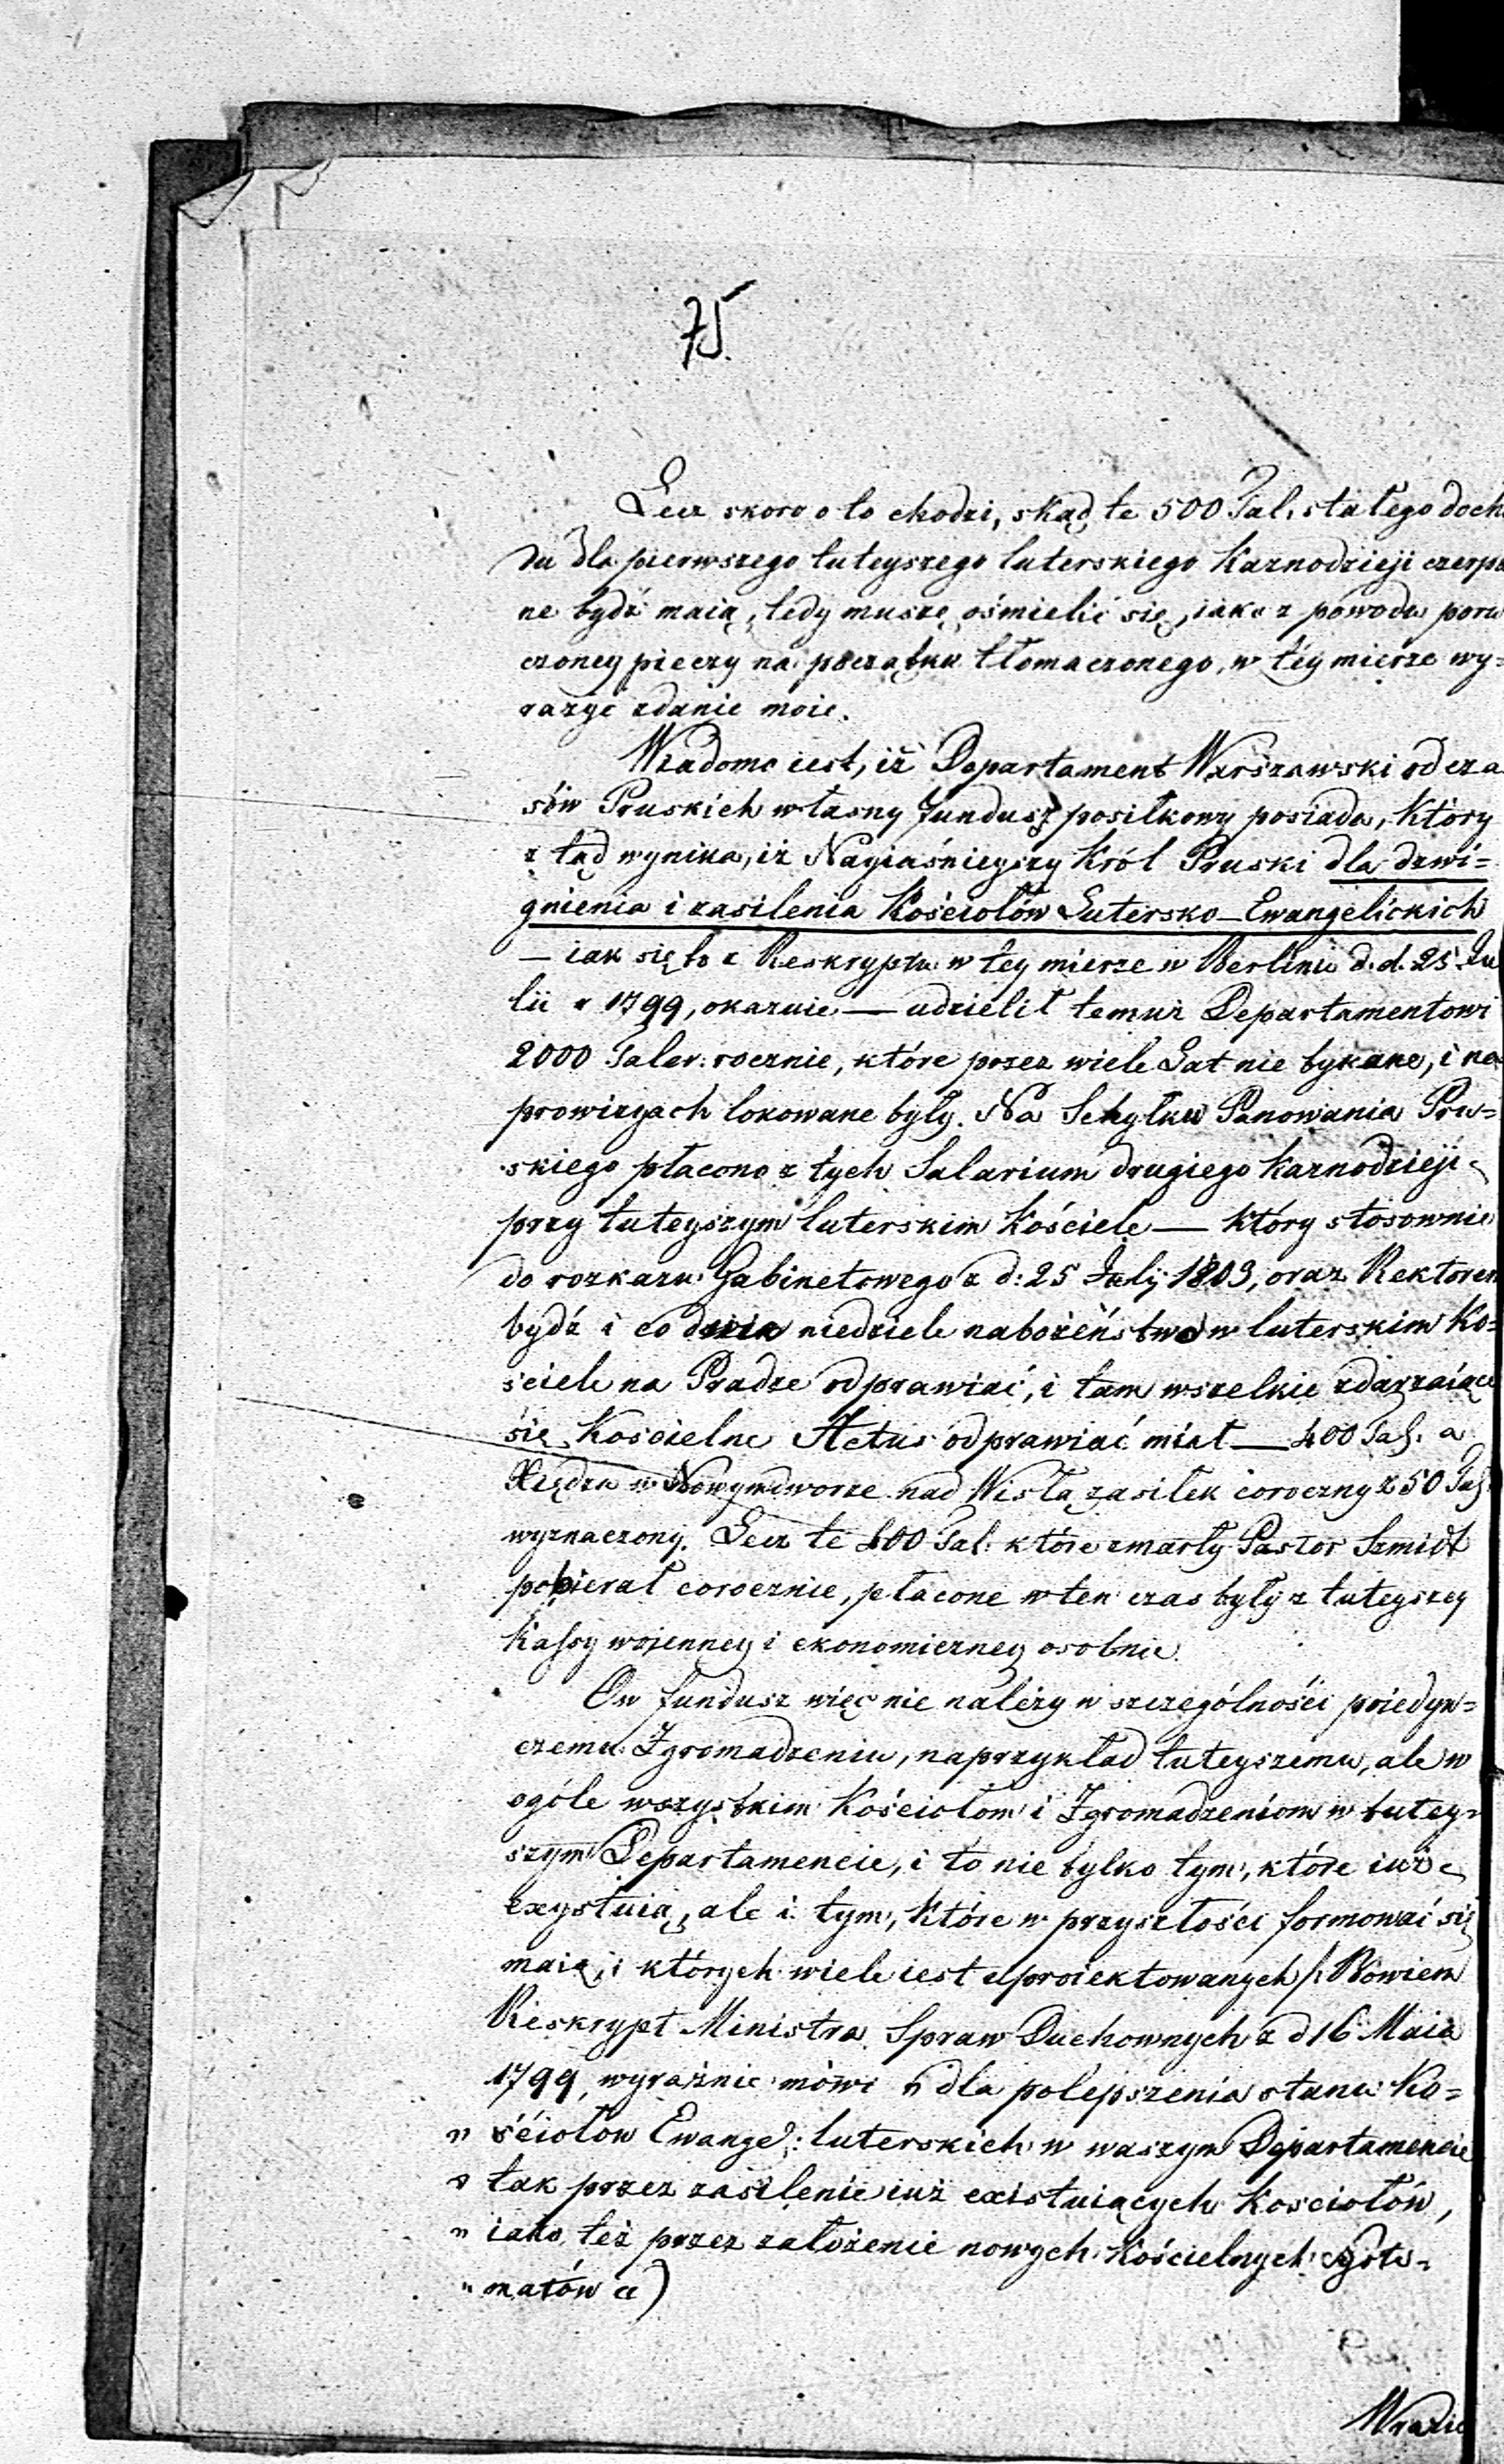 75.
Lecz skoro o to chodzi, skąd te 500 Tal. stałego doch
du dla pierwszego tuteyszego luterskiego Kaznodzieji czerpa
ne bydź maią, tedy muszę ośmielić się, iako z powodu poru
czoney pieczy na początku tłomaczonego, w téy mierze wy=
razyć zdanie moie.
Wiadomo iest, iż Departament Warszawski od cza
sów Pruskich własny fundusz posiłkowy posiada, który
z tąd wynika, iż Nayiaśnieyszy Król Pruski dla dzwi=
gnienia i zasilenia Kościołów Lutersko-Ewangelickich
— iak się to z Reskryptu w tey mierze w Berlinie d. d. 25 Ju
lii r 1799, okazuie — udzielił temuż Departamentowi
2000 Taler. rocznie, które przez wiele Lat nie tykane, i na
prowizyach lokowane były. Na Schyłku Panowania Pru=
skiego płacono z tych Salarium drugiego Kaznodzieji
przy tuteyszym luterskim Kościele — który stosownie
do rozkazu Gabinetowego z d: 25 July 1803, oraz Rektorem
bydź i co niedziele nabożeństwo w luterskim Ko=
ściele na Pradze odprawiać, i tam wszelkie zdarzaiące
się Kościelne Actus odprawiać miał — 400 Tal. a
Xiędzu w Nowymdworze nad Wisłą zasiłek coroczny z 50 Tal.
wyznaczony. Lecz te 400 Tal. które zmarły Pastor Szmidt
pobierał corocznie, płacone w ten czas były z tuteyszey
Kassy wojenney i ekonomiczney osobnie.
Ow fundusz więc nie należy w szczególności poiedyn=
czemu Zgromadzeniu, naprzykład tuteyszemu, ale w
ogóle wszystkim Kościołom i Zgromadzeniom w tutey=
szym Departamencie, i to nie tylko tym, które iuż
exystuią, ale i tym, które w przyszłości formować się
maią, i których wiele iest proiektowanych /: Bowiem
Reskrypt Ministra Spraw Duchownych z d 16 Maia
1799, wyraźnie mówi „ dla polepszenia stanu Ko=
„ ściołów Ewangel: luterskich w waszym Departamencie
„ tak przez zasilenie iuż existuiących Kosciołów,
„ iako też przez założenie nowych Kościelnych Syste-
„ matów cc)
Wrazie